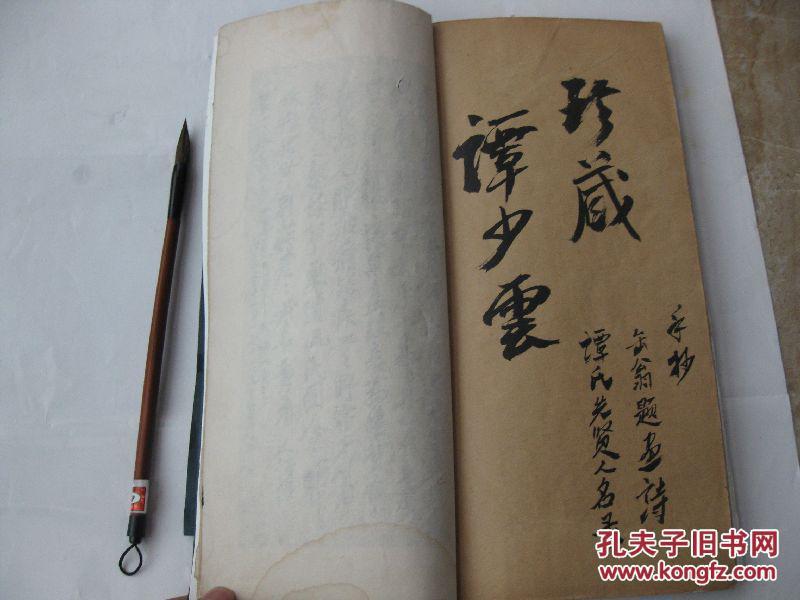 珍藏
譚少雲
手抄
缶翁題画詩
譚氏先贤人名录
孔夫子旧书网
www.kongfz.com